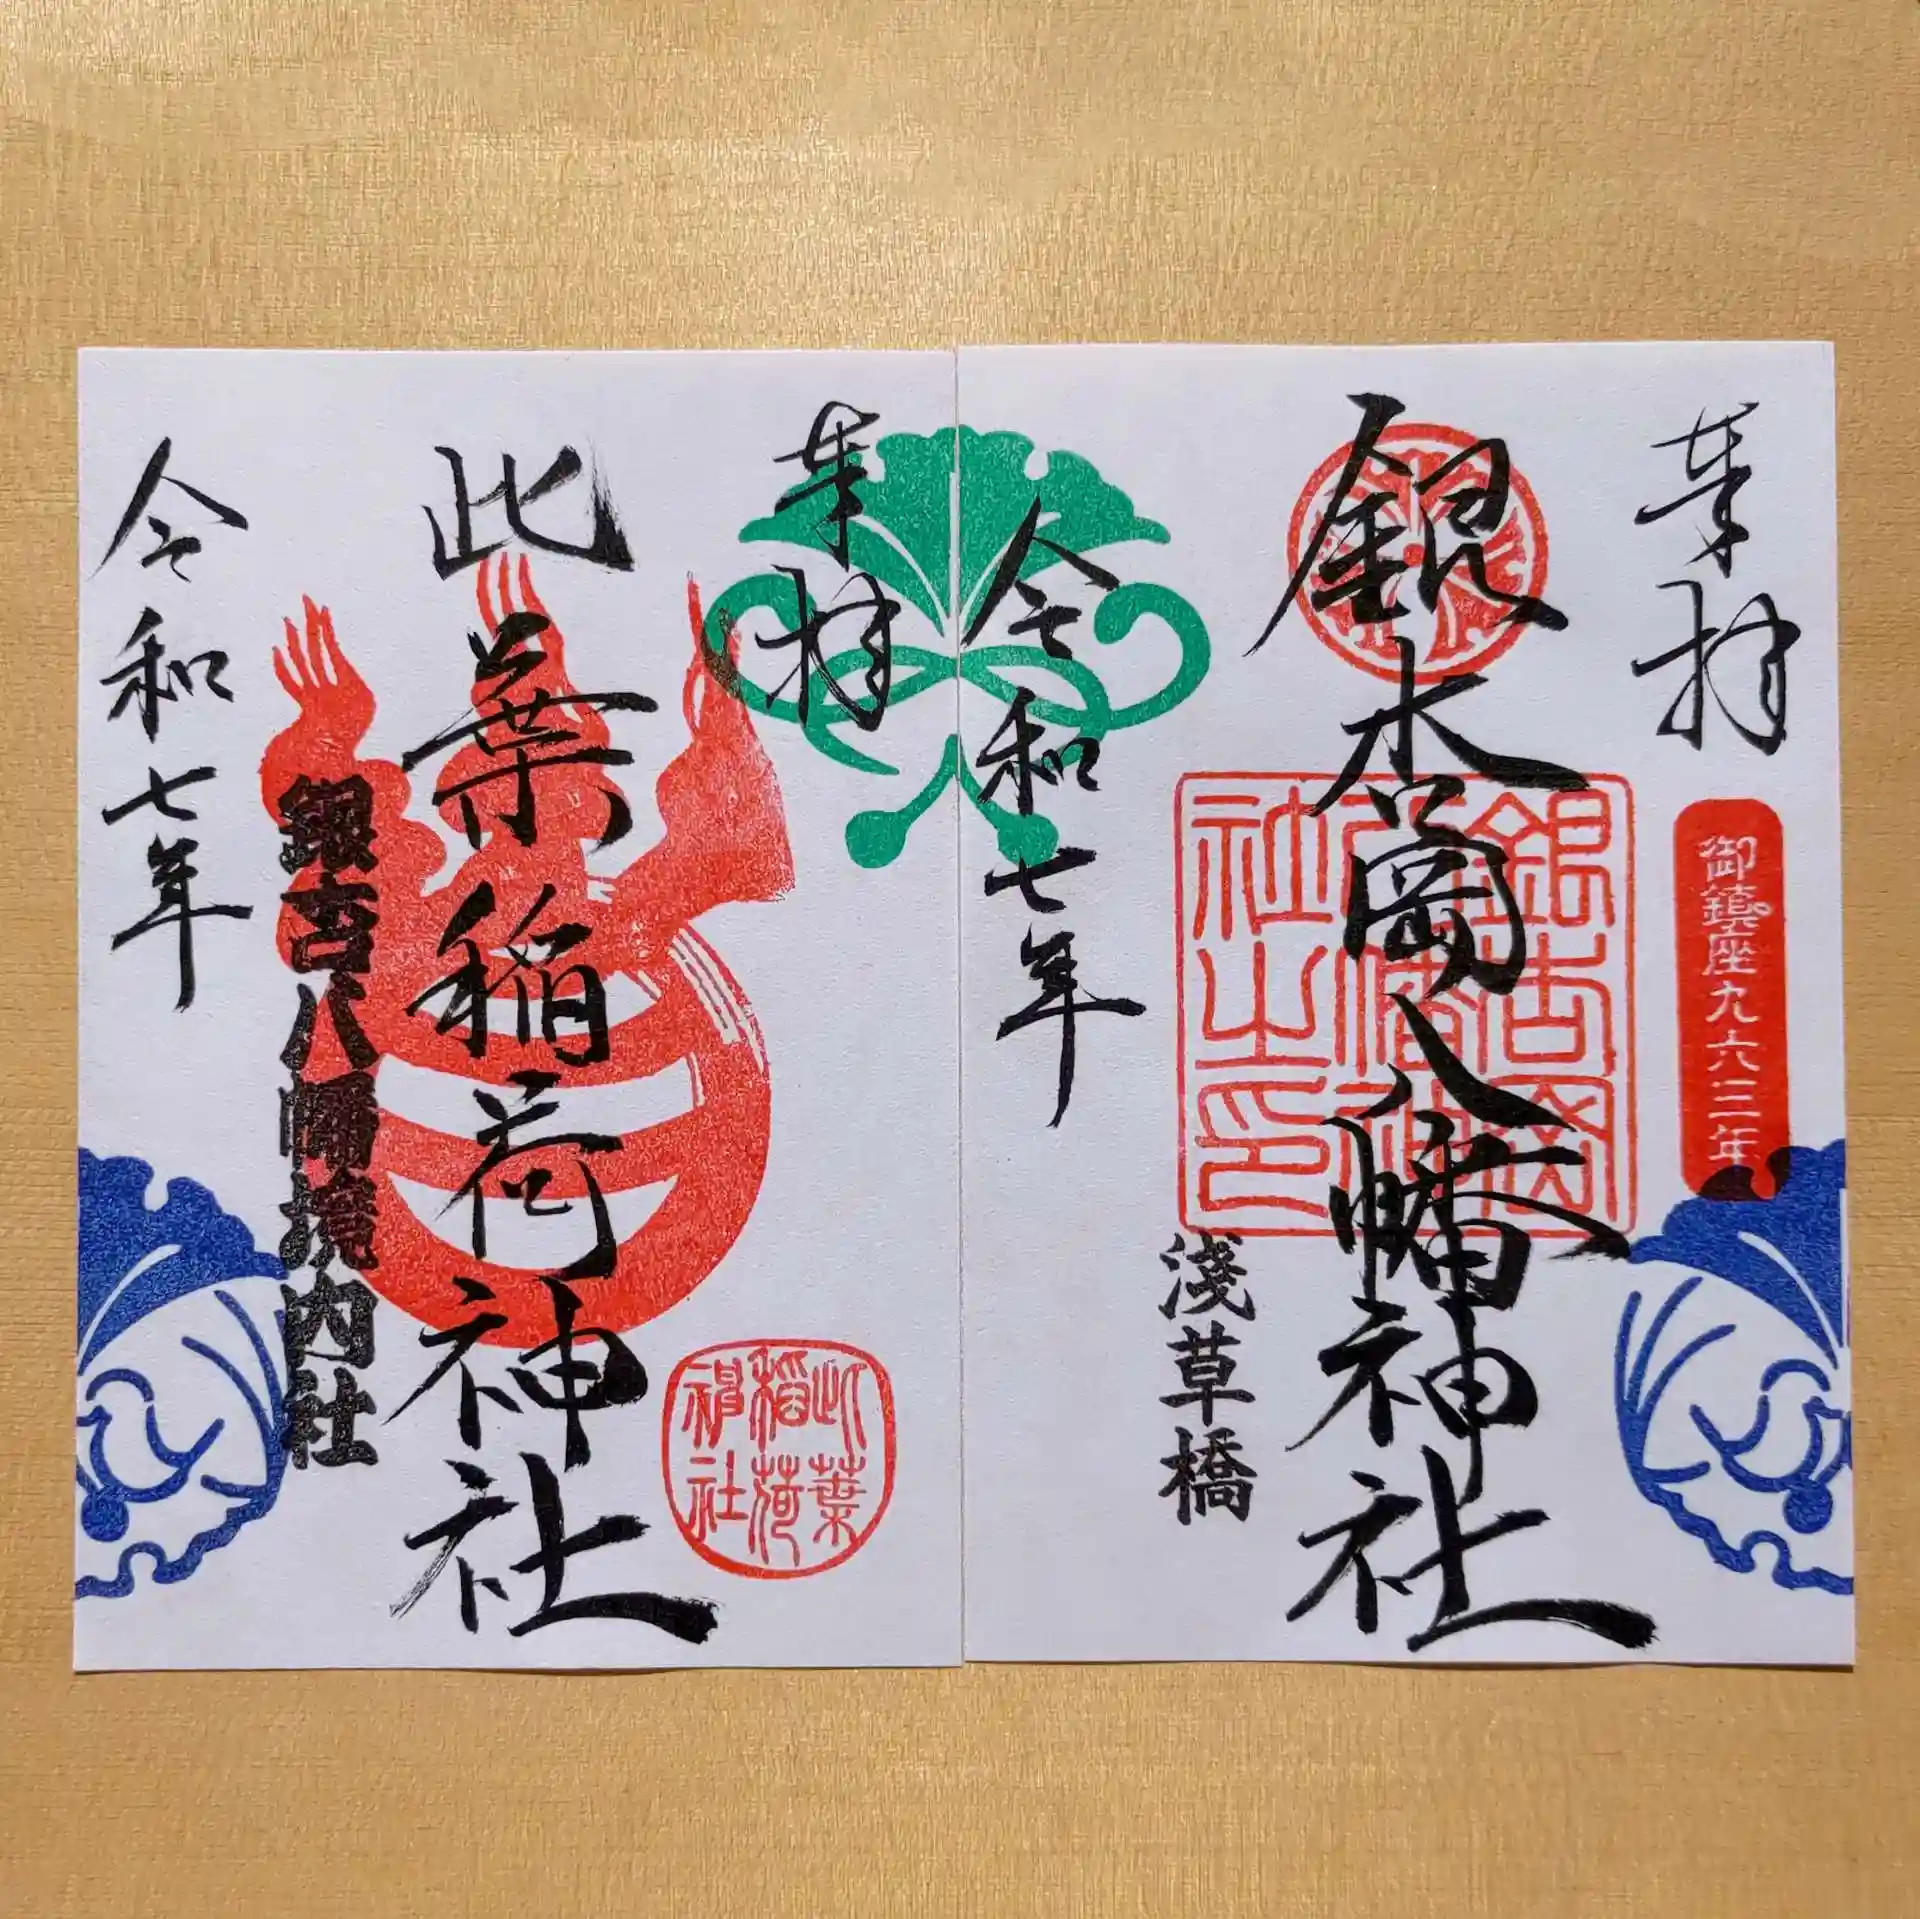 奉拝
銀杏岡八幡神社
御鎮座九六三年
銀杏岡
八幡神
社之印
淺草橋
令和七年
奉拝
此葉稲荷神社
此葉
稲荷
神社
銀杏八幡境内社
令和七年